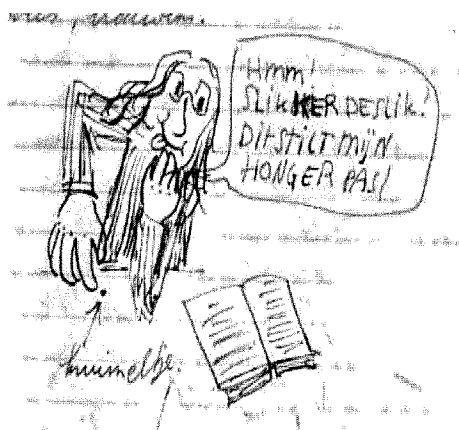 Hmm!
SLIKKERDESLIK!
DIT STILT MIJN
HONGER PAS!
kruimeltje.